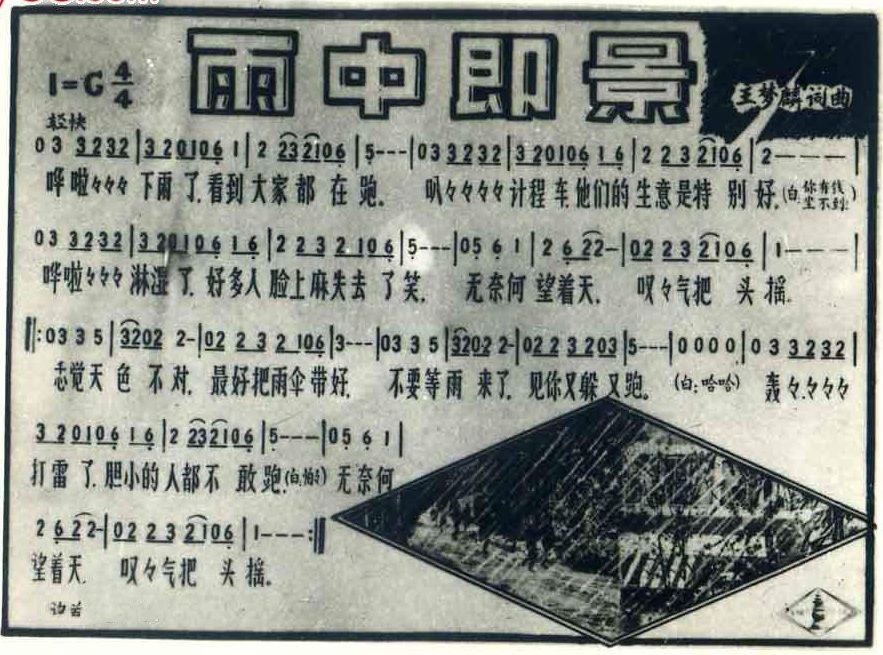 雨中即景
1=G 4/4
王梦麟词曲
轻快
03 3232 | 320106 1 | 2 232106 | 5--- | 03 3232 | 320106 16 | 2 2 3 2106 | 2--- |
哗啦々々々 下雨了,看到大家都在跑. 叭々々々々计程车,他们的生意是特别好,(白:你有钱坐不到)
03 3232 | 320106 16 | 2 2 3 2.106 | 5--- | 05 6 1 | 2 622- | 02 2 3 2106 | 1--- |
哗啦々々々淋湿了,好多人脸上麻失去了笑, 无奈何望着天, 叹々气把头摇.
‖:03 3 5 | 3202 2- | 02 2 3 2 106 | 3--- | 03 3 5 | 3202 2- | 02 2 3 203 | 5--- | 0000 | 03 3232 |
觉天色不对,最好把雨伞带好, 不要等雨来了,见你又躲又跑。(白:哈哈) 轰々.々々々
3 20106 16 | 2 232106 | 5--- | 05 6 1 |
打雷了,胆小的人都不敢跑,(白:怕々)无奈何
2 622- | 02 2 3 2106 | 1---:‖
望着天, 叹々气把头摇.